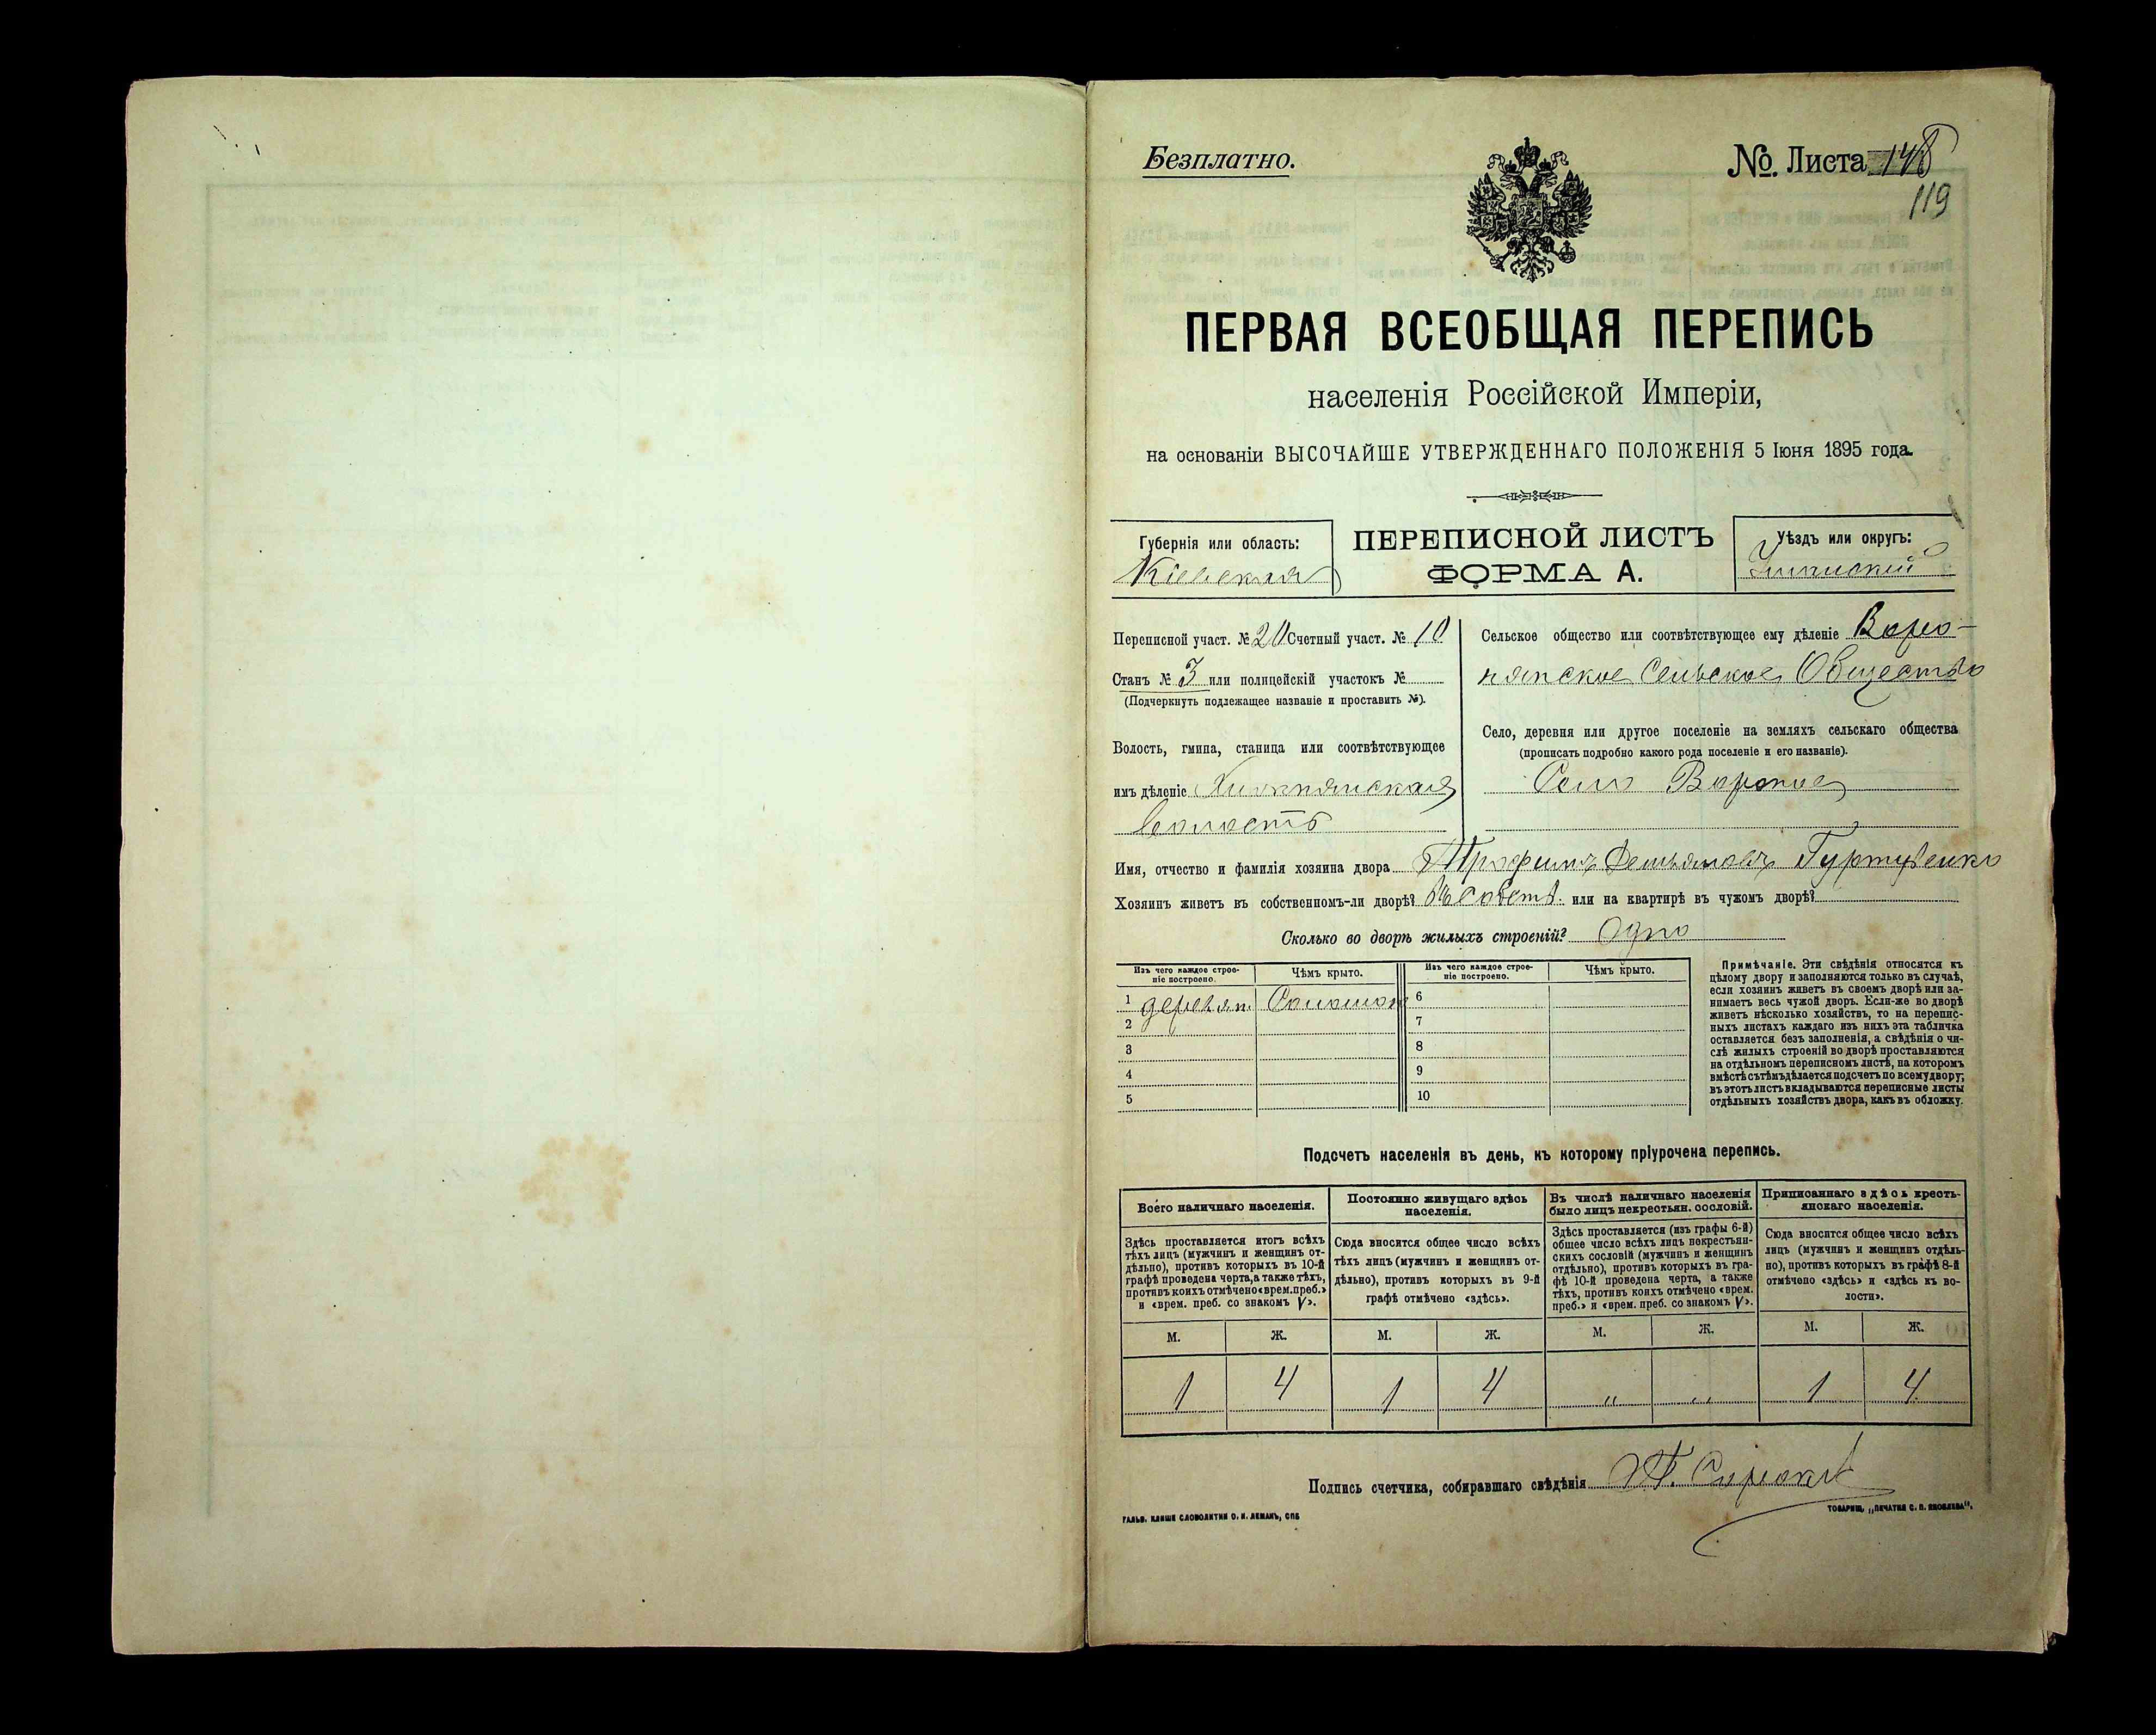 Безплатно.
№. Листа 148
119
ПЕРВАЯ ВСЕОБЩАЯ ПЕРЕПИСЬ
населенія Россійской Имперіи,
на основаніи ВЫСОЧАЙШЕ УТВЕРЖДЕННАГО ПОЛОЖЕНІЯ 5 Іюня 1895 года.
Губернія или область:
Кіевская
ПЕРЕПИСНОЙ ЛИСТЪ
ФОРМА А.
Уѣздъ или округъ:
Уманскій
Переписной участ. № 20 Счетный участ. № 10
Станъ № 3 или полицейскій участокъ №
(Подчеркнуть подлежащее названіе и проставить №).
Волость, гмина, станица или соотвѣтствующее
имъ дѣленіе
Волость
Сельское общество или соотвѣтствующее ему дѣленіе Воро-
нянское Сельское Общество
Село, деревня или другое поселеніе на земляхъ сельскаго общества
(прописать подробно какого рода поселеніе и его названіе).
Село Вороное
Имя, отчество и фамилія хозяина двора Трофимъ Демьяновъ Гуртовенко
Хозяинъ живетъ въ собственномъ-ли дворѣ? Въ собств. или на квартирѣ въ чужомъ дворѣ?
Сколько во дворѣ жилыхъ строеній? Одно
Изъ чего каждое строе-
ніе построено.
Чѣмъ крыто.
Изъ чего каждое строе-
ніе построено.
Чѣмъ крыто.
1 деревян. Соломою 6
2 7
3 8
4 9
5 10
Примѣчаніе. Эти свѣдѣнія относятся къ
цѣлому двору и заполняются только въ случаѣ,
если хозяинъ живетъ въ своемъ дворѣ или за-
нимаетъ весь чужой дворъ. Если-же во дворѣ
живетъ нѣсколько хозяйствъ, то на перепис-
ныхъ листахъ каждаго изъ нихъ эта табличка
оставляется безъ заполненія, а свѣдѣнія о чи-
слѣ жилыхъ строеній во дворѣ проставляются
на отдѣльномъ переписномъ листѣ, на которомъ
вмѣстѣ съ тѣмъ дѣлается подсчетъ по всему двору;
въ этотъ листъ вкладываются переписные листы
отдѣльныхъ хозяйствъ двора, какъ въ обложку.
Подсчетъ населенія въ день, къ которому пріурочена перепись.
Всего наличнаго населенія.
Здѣсь проставляется итогъ всѣхъ
тѣхъ лицъ (мужчинъ и женщинъ от-
дѣльно), противъ которыхъ въ 10-й
графѣ проведена черта, а также тѣхъ,
противъ коихъ отмѣчено «врем. преб.»
и «врем. преб. со знакомъ V».
Постоянно живущаго здѣсь
населенія.
Сюда вносится общее число всѣхъ
тѣхъ лицъ (мужчинъ и женщинъ от-
дѣльно), противъ которыхъ въ 9-й
графѣ отмѣчено «здѣсь».
Въ числѣ наличнаго населенія
было лицъ некрестьян. сословій.
Здѣсь проставляется (изъ графы 6-й)
общее число всѣхъ лицъ некрестьян-
скихъ сословій (мужчинъ и женщинъ
отдѣльно), противъ которыхъ въ гра-
фѣ 10-й проведена черта, а также
тѣхъ, противъ коихъ отмѣчено «врем.
преб.» и «врем. преб. со знакомъ V».
Приписаннаго здѣсь кресть-
янскаго населенія.
Сюда вносится общее число всѣхъ
лицъ (мужчинъ и женщинъ отдѣль-
но), противъ которыхъ въ графѣ 8-й
отмѣчено «здѣсь» и «здѣсь къ во-
лости».
М. Ж. М. Ж. М. Ж. М. Ж.
1 4 1 4 " " 1 4
Подпись счетчика, собиравшаго свѣдѣнія
ГАЛЬВ. КЛИШЕ СЛОВОЛИТНИ О. И. ЛЕМАНЪ, СПБ
ТОВАРИЩ. „ПЕЧАТНЯ С. П. ЯКОВЛЕВА".